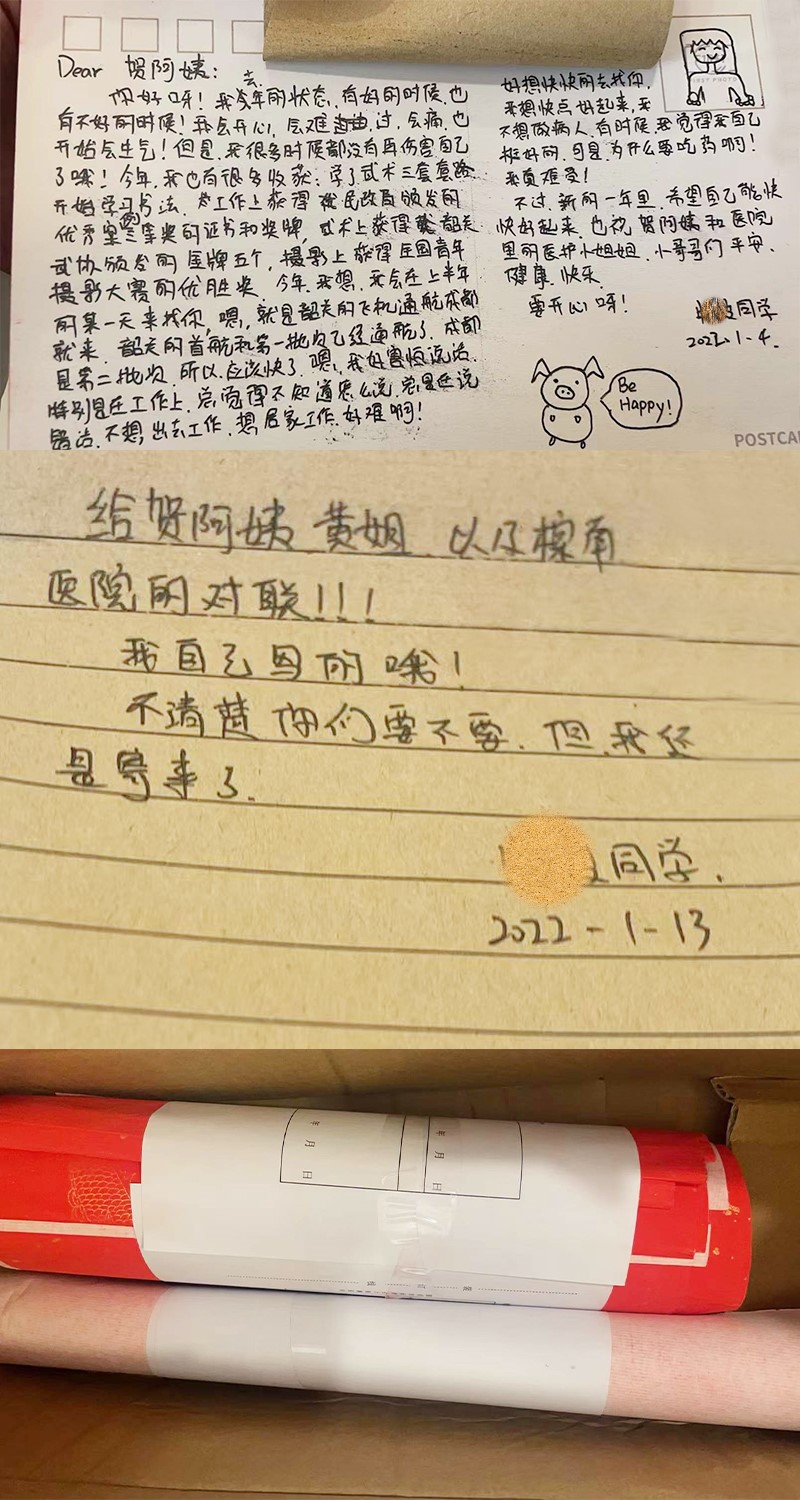 Dear 贺阿姨:
去
你好呀!我今年的状态,有好的时候,也
有不好的时候!我会开心,会难过,会痛,也
开始会生气!但是,我很多时候都没有再伤害自己
了哦!今年,我也有很多收获:学了武术三套套路
开始学习书法,工作上获得民政局颁发的
优秀案三等奖的证书和奖牌,武术上获得韶关
武协颁发的金牌五个,摄影上获得全国青年
摄影大赛的优胜奖.今年,我想,我会在上半年
的某一天来找你,嗯,就是韶关的飞机通航成都
就来.韶关的首航和第一批次已经通航了.成都
是第二批次,所以,应该快了.嗯,我好害怕说话.
特别是在工作上,总觉得不知道怎么说,总是在说
错话.不想出去工作,想居家工作.好难啊!
好想快快的去找你,
我想快点好起来,我
不想做病人.有时候,我觉得我自己
挺好的.可是,为什么要吃药啊!
我真难受!
不过,新的一年里,希望自己能快
快好起来.也祝贺阿姨和医院
里的医护小姐姐、小哥哥们平安、
健康、快乐.
要开心呀!
同学
2022.1.4.
FIRST PHOTO
Be
Happy!
POSTCA
给贺阿姨、黄姐、以及橡南
医院的对联!!!
我自己写的哦!
不清楚你们要不要.但,我还
是寄来了.
同学.
2022-1-13
年 月 日
年 月 日
装 订 线